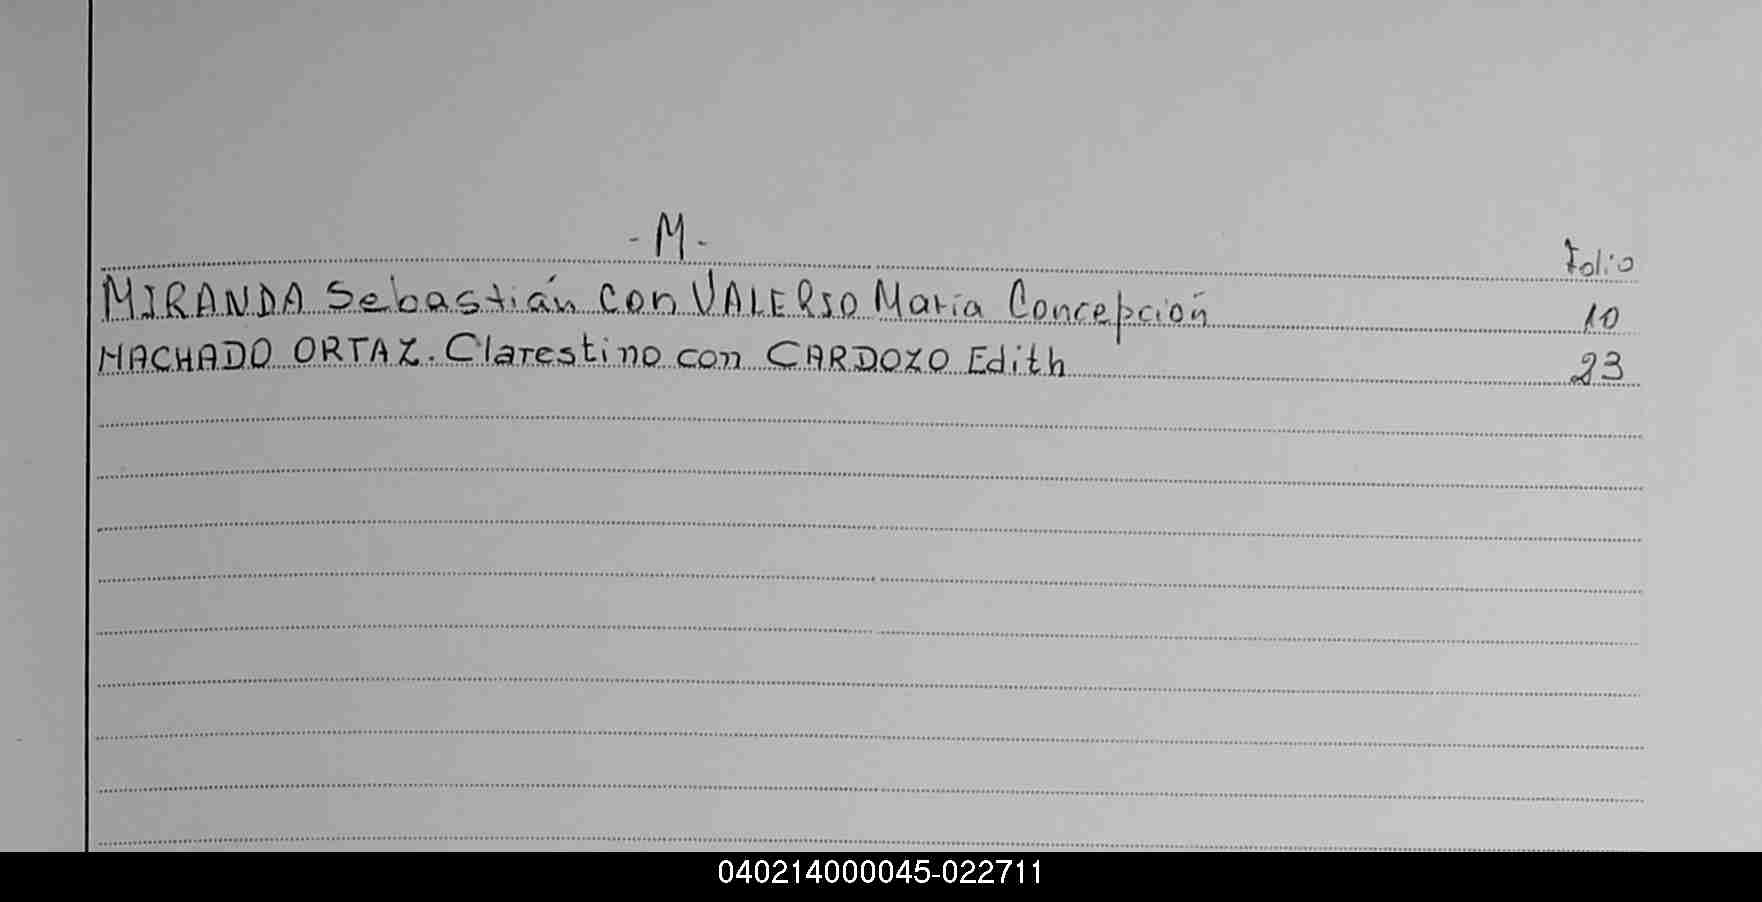 - M -
Folio
MIRANDA Sebastián con VALERIO Maria Concepción 10
MACHADO ORTAZ. Clarestino con CARDOZO Edith 23
040214000045-022711